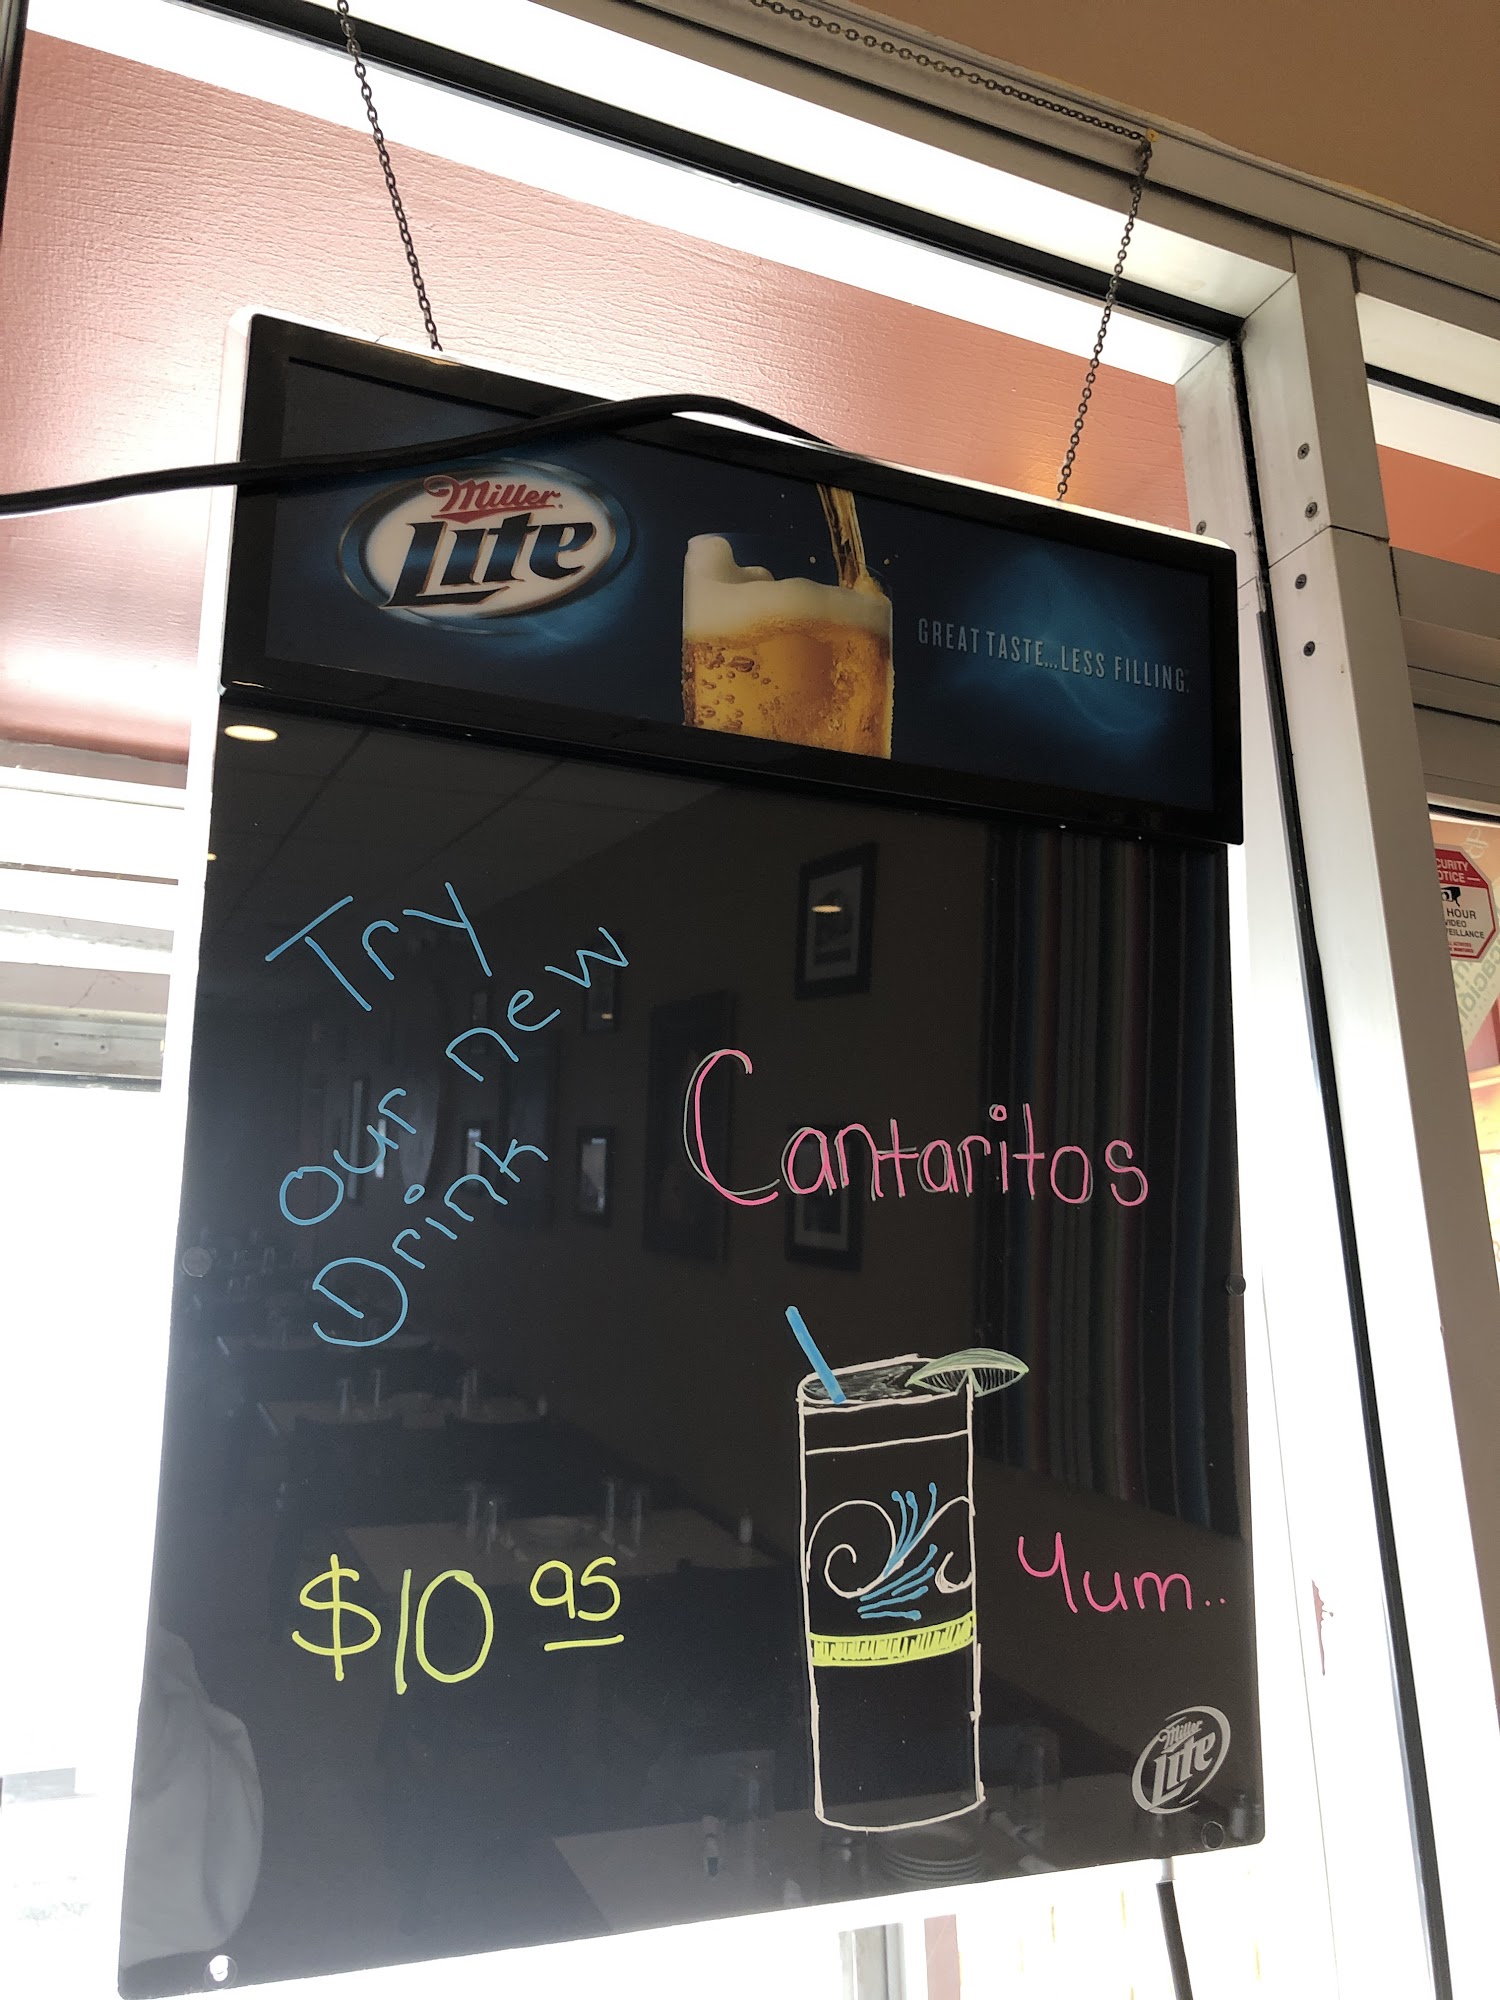 Miller
Lite
GREAT TASTE...LESS FILLING.
Try
our new
Drink
Cantaritos
$10 95
Yum..
Miller
Lite
HOUR
VIDEO